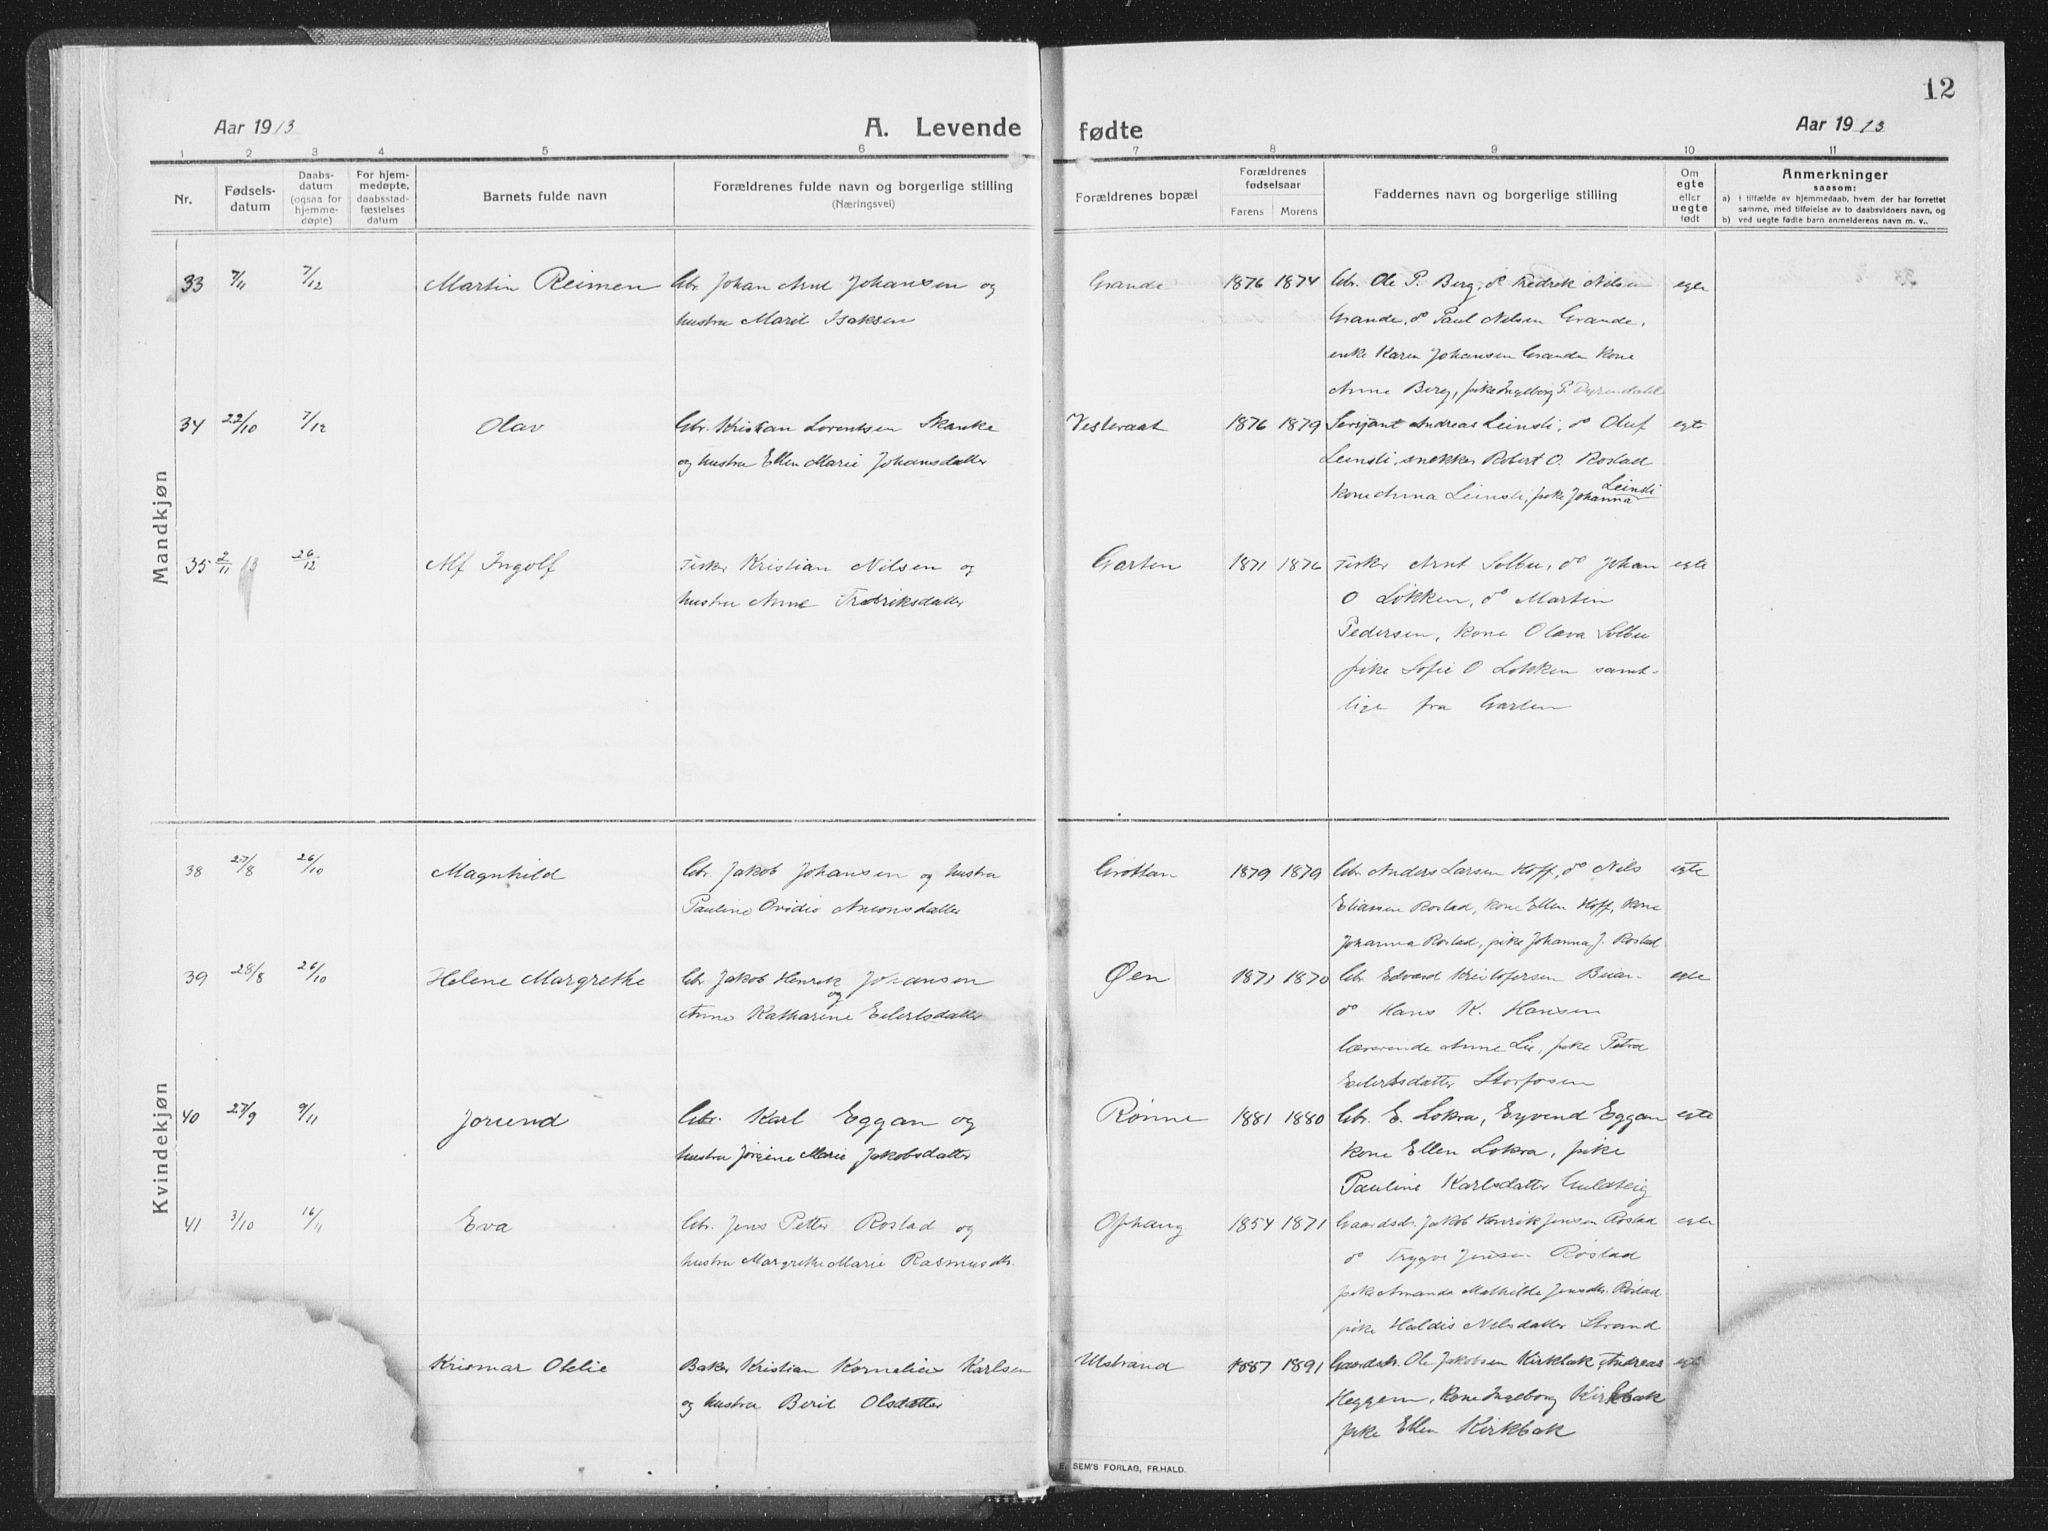 12
Aar 1913
A. Levende fødte
Aar 1913
1 2 3 4 5 6 7 8 9 10 11
Nr.
Fødsels-
datum
Daabs-
datum
(ogsaa for
hjemme-
døpte)
For hjem-
medøpte,
daabsstad-
fæstelses
datum
Barnets fulde navn
Forældrenes fulde navn og borgerlige stilling
(Næringsvei)
Forældrenes bopæl
Forældrenes
fødselsaar
Farens Morens
Faddernes navn og borgerlige stilling
Om
egte
eller
uegte
født
Anmerkninger
saasom:
a) i tilfælde av hjemmedaab, hvem der har forrettet
samme, med tilføielse av to daabsvidners navn, og
b) ved uegte fødte barn anmelderens navn m. v..
Mandkjøn
33 7/11 7/12 Martin Reimen Gbr. Johan Arnt Johansen og
hustru Marit Isaksen
Grande 1876 1874 Gbr. Ole P. Berg, do Fredrik Nilsen egte
Grande, do Paul Nilsen Grande,
enke Karen Johansen Grande kone
Anne Berg, pike Ingeborg P. Dyrendahl
34 22/10 7/12 Olav Gbr. Kristian Lorentsen Skanke
og hustru Ellen Marie Johansdatter
Vestraat 1876 1879 Serjant Andreas Leinsli, do Oluf egte
Leinsli, snekker Robert O. Rostad
kone Anna Leinsli, pike Johanna Leinsli
35 2/11 13 26/12 Alf Ingolf Fisker Kristian Nilsen og
hustru Anne Fredriksdatter
Garten 1871 1876 Fisker Arnt Solbu, do Johan egte
O Løkken, do Martin
Pedersen, kone Olava Solbu
pike Sofie O Løkken samt-
lige fra Garten
Kvindekjøn
38 27/8 26/10 Magnhild Gbr. Jakob Johansen og hustru
Pauline Ovidie Antonsdatter
Grottan 1879 1879 Gbr. Anders Larsen Hoff, do Nils egte
Eliassen Rostad, kone Ellen Hoff, kone
Johanna Rostad, pike Johanna J. Rostad
39 28/8 26/10 Helene Margrethe Gbr Jakob Henrik Johansen
og
Anne Katharine Eilertsdatter
Øen 1871 1870 Gbr. Edvard Kristofersen Beian egte
do Hans K. Hansen
lærerinde Anne Lie, pike Petra
Eilertsdatter Storfosen
40 27/9 9/11 Jorund Gbr. Karl Eggan og
hustru Jørgine Marie Jakobsdatter
Rønne 1881 1880 Gbr. E. Lokra, Eyvend Eggan egte
kone Ellen Lokra, pike
Pauline Karlsdatter Guldteig
41 3/10 16/11 Eva Gbr. Jens Petter Rostad og
hustru Margrethe Marie Rasmusdtr.
Ophaug 1854 1871 Gaardsbr. Jakob Henrik Jensen Rostad egte
do Trygve Jensen Rostad
pike Amanda Mathilde Jensdtr. Rostad
pike Haldis Nilsdatter Strand
Krismar Otelie Baker Kristian Kornelius Karlsen
og hustru Berit Olsdatter
Ulstrand 1887 1891 Gaardsbr. Ole Jakobsen Kirkbak, Andreas egte
Heggem, kone Ingeborg Kirkbak
pike Ellen Kirkbak
E. SEM'S FORLAG, FR.HALD.